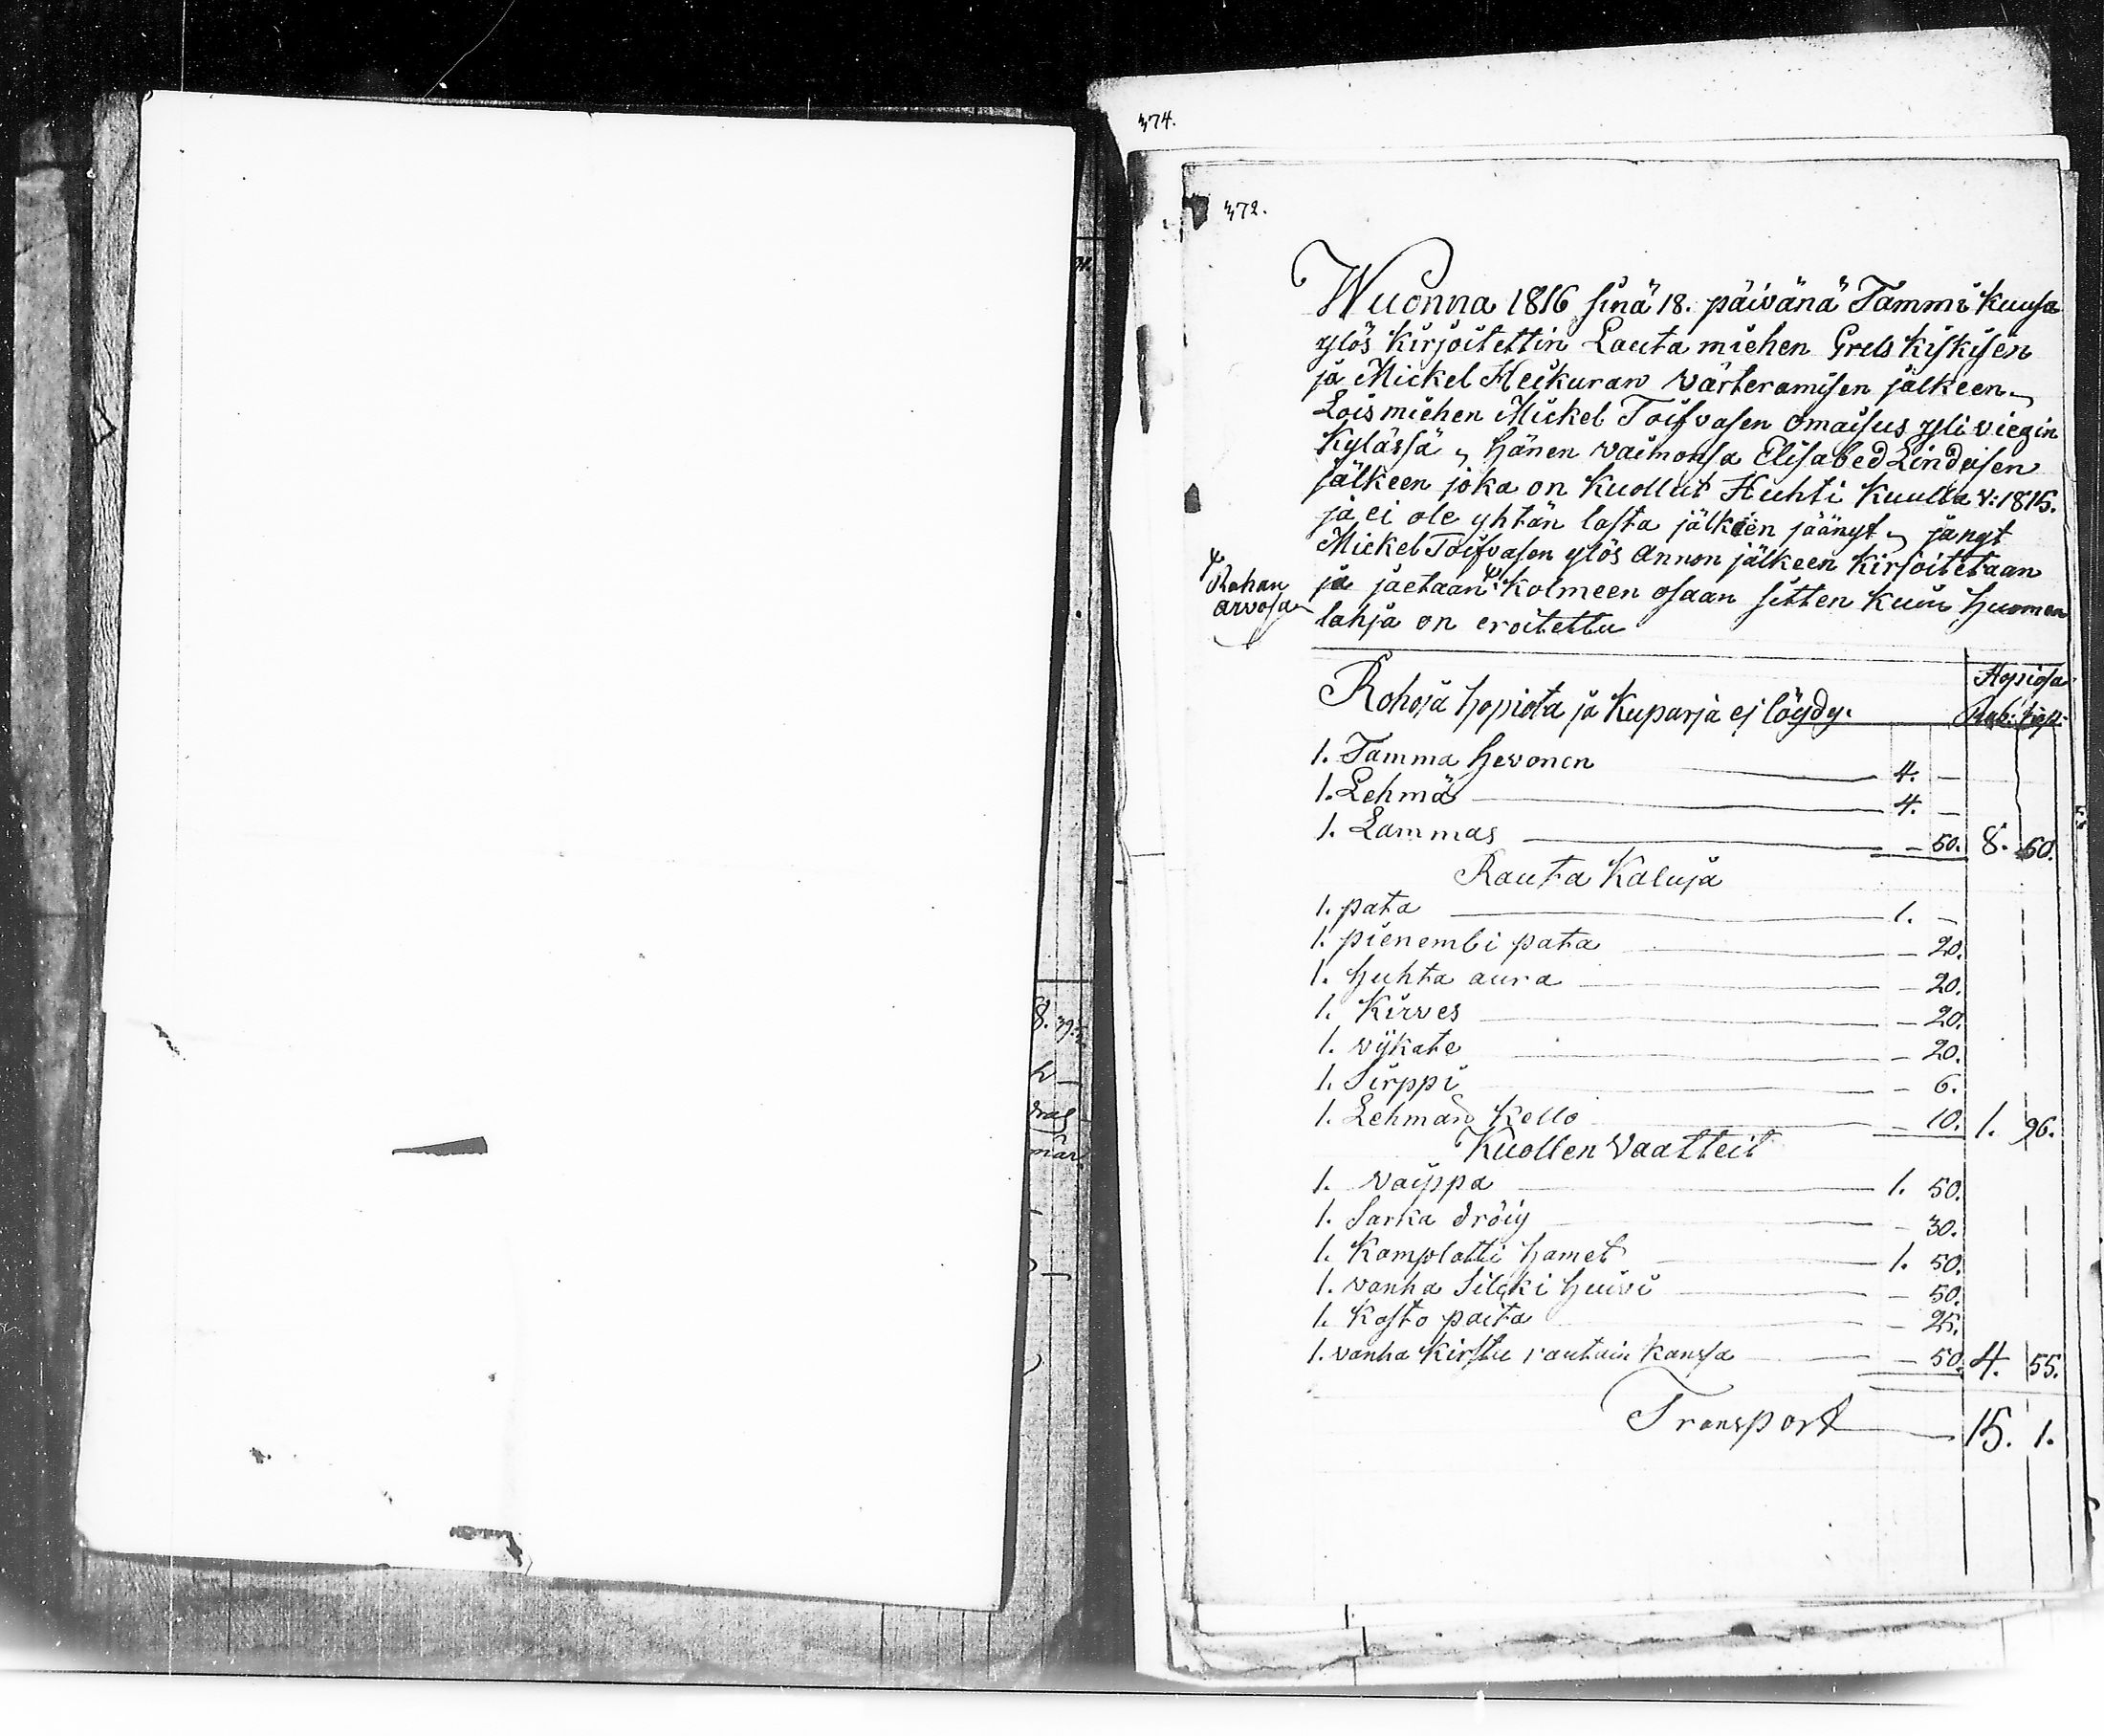 374.
372.
Wuonna 1816 sinä 18. päivänä Tammi kuusa
ylös kirjoitettin Lauta miehen Grels Kiskisen
ja Mickel Heikuran värteramisen jälkeen
Loismiehen Mickel Toifvasen omaisus yli viegin
kylässä, hänen vaimonsa Elisabed Lindeisen
jälkeen joka on kuollut Huhti kuulla v: 1815.
ja ei ole yhtän lasta jälkeen jäänyt, ja nyt
Mickel Toifvasen ylös annon jälkeen kirjoitetaan
ja jaetaan kolmeen osaan sitten kuin huomen
lahja on eroitettu
Rahan
arvosa
Hopiosa
Rohoja hopiota ja kuparja ej löydy. Rub: kop:
1. Tamma hevonen 4. —
1. Lehmä 4. —
1. Lammas — 50. 8. 50.
Rauta kaluja
1. pata 1. —
1. pienembi pata — 20.
1. huhta aura — 20.
1. kirves — 20.
1. vijkate — 20.
1. Sirppi — 6.
1. Lehmän kello — 10. 1. 96.
Kuollen vaatteit
1. vaippa 1. 50.
1. Sarka dröiy — 30.
1. Kamplotti hamet 1. 50.
1. vanha Silcki huivi — 50.
1. Kosto paita — 25.
1. vanha kirstu rautain kanssa — 50. 4. 55.
Transport 15. 1.